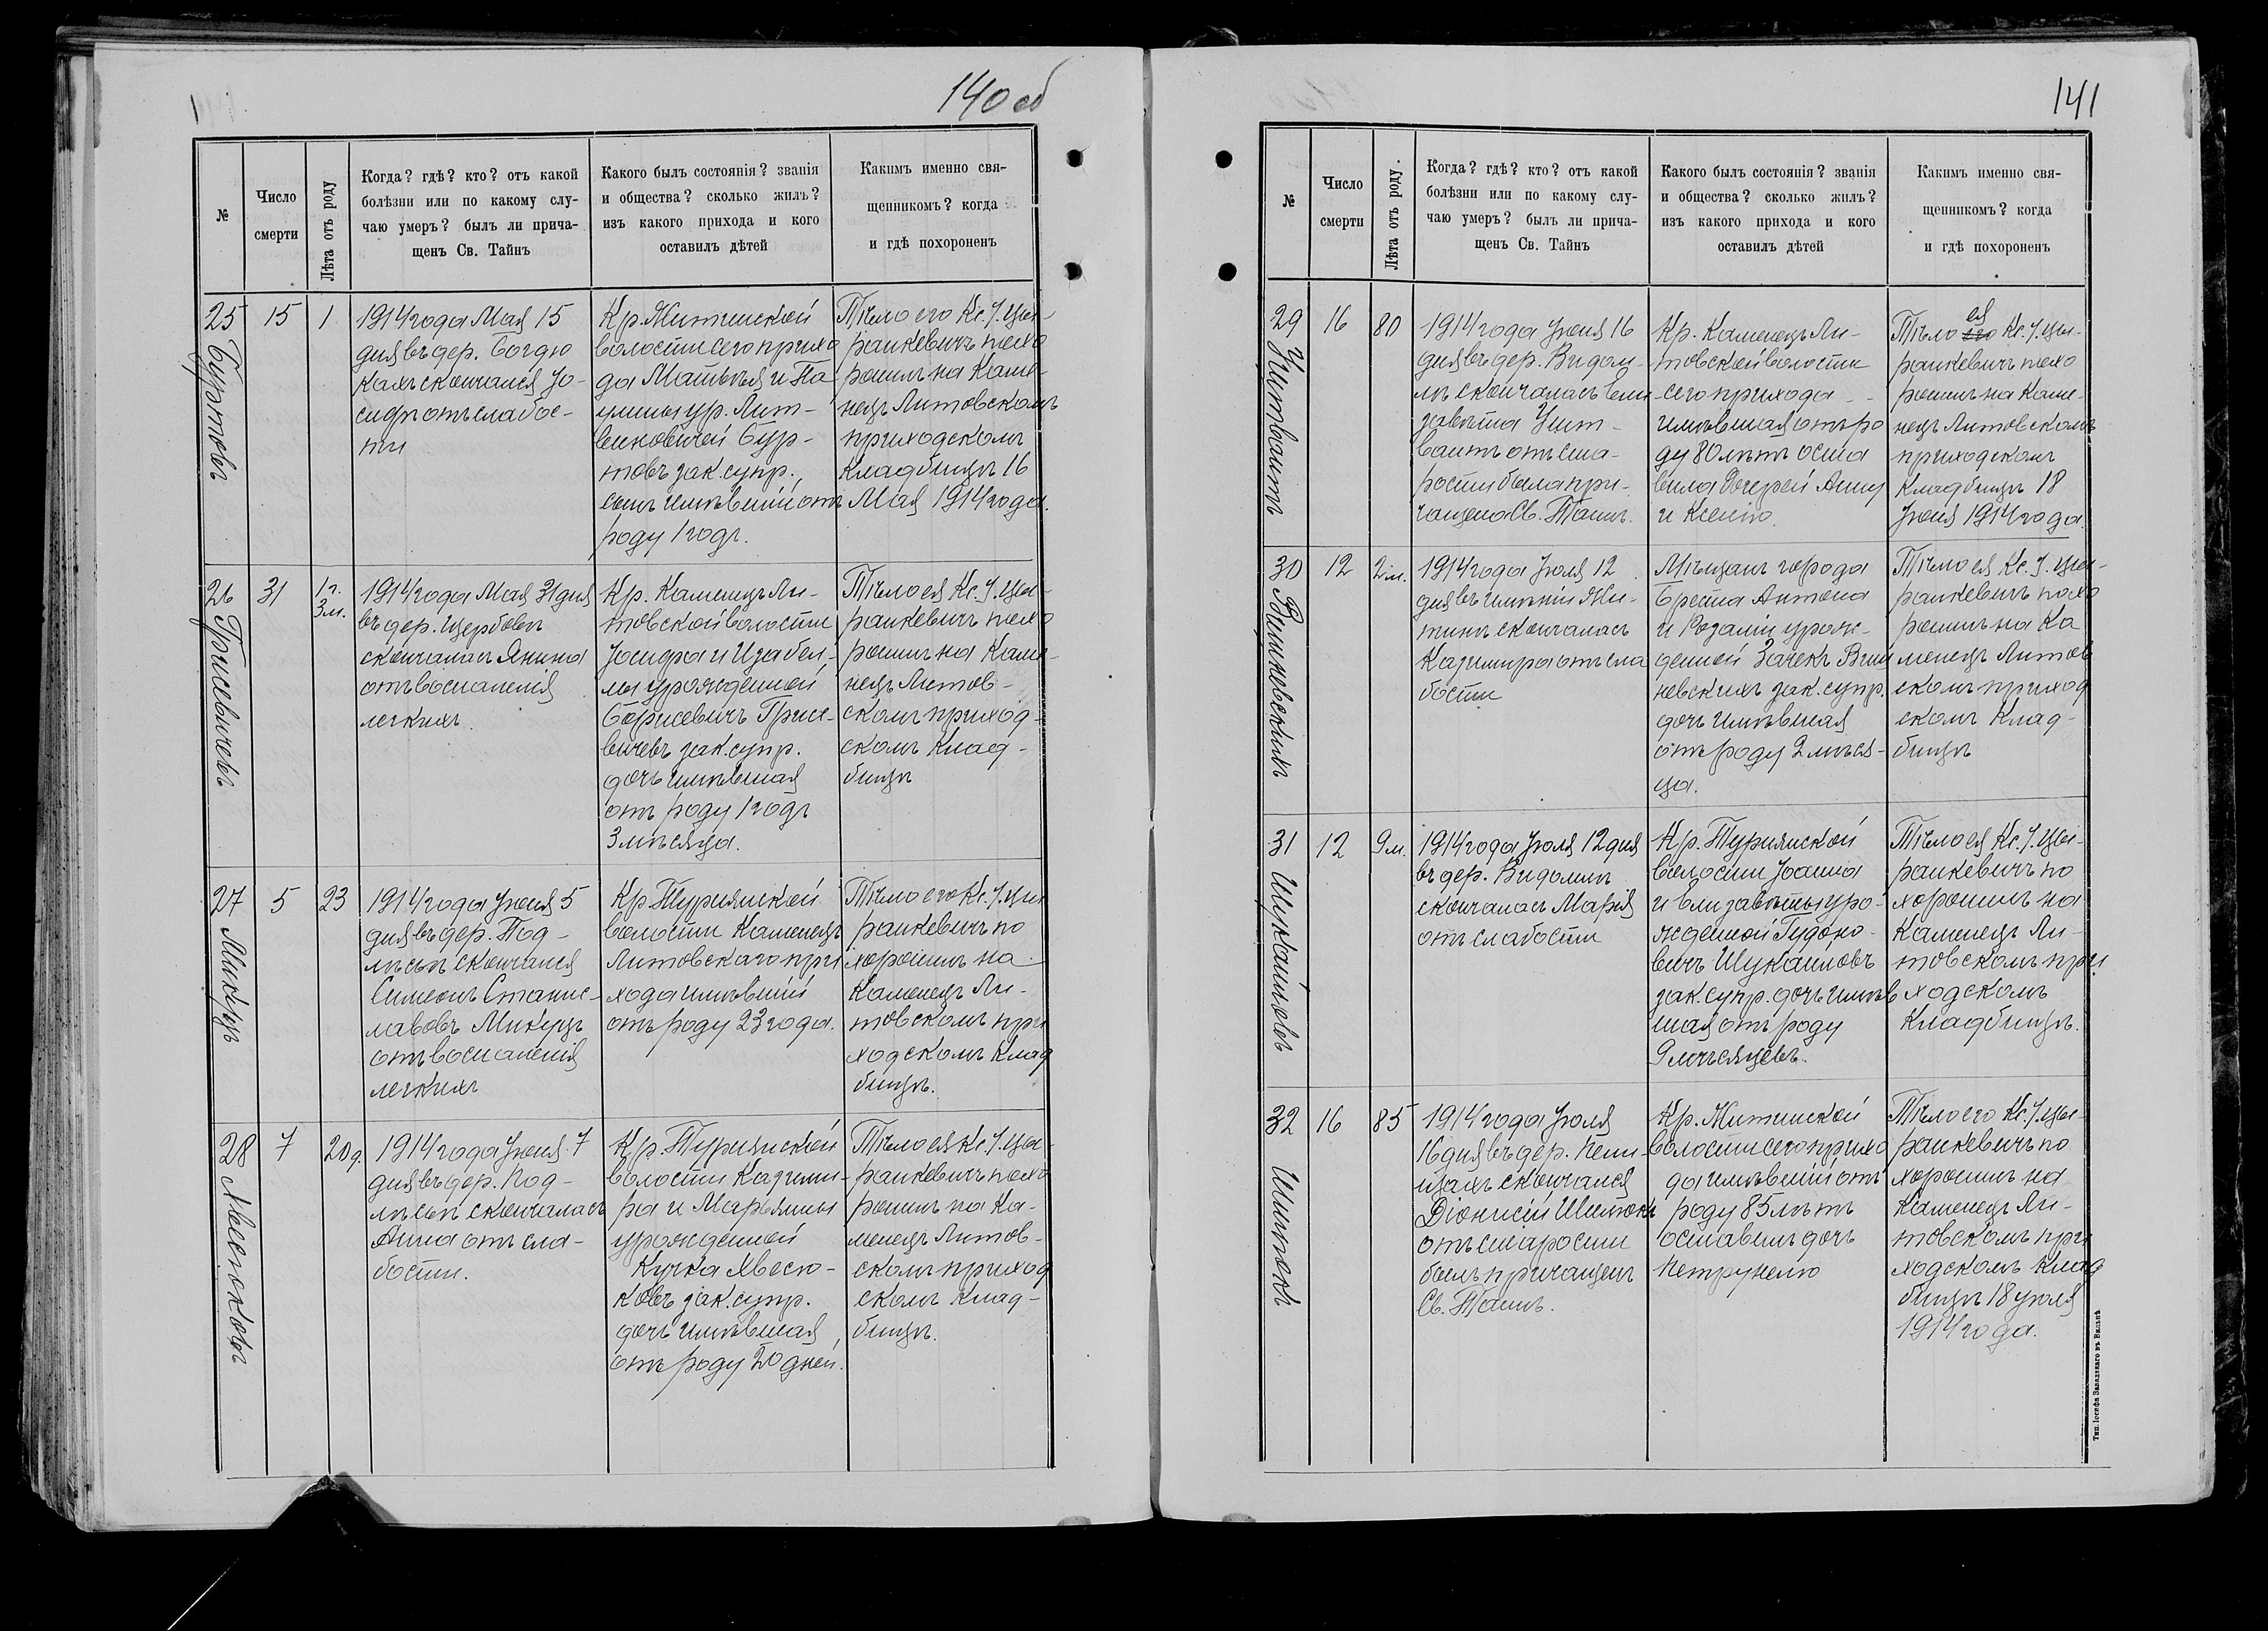 140 об
№
Число
смерти
Лѣта отъ роду
Когда? гдѣ? кто? отъ какой
болѣзни или по какому слу-
чаю умеръ? былъ ли прича-
щенъ Св. Таинъ
Какого былъ состоянія? званія
и общества? сколько жилъ?
изъ какого прихода и кого
оставилъ дѣтей
Какимъ именно свя-
щенникомъ? когда
и гдѣ похороненъ
25
Буртовъ
15
1
1914 года Мая 15
дня въ дер. Богдю
кахъ скончался Іо-
сифъ отъ слабос-
ти
Кр. Житинской
волости сего прихо
да Матвѣя и Па
улины ур. Лит-
виновичей Бур-
товъ зак. супр.,
сынъ имѣвшій отъ
роду 1 годъ.
Тѣло его Кс. І. Цы-
ранкевичъ похо
ронилъ на Каме-
нецъ Литовскомъ
приходскомъ
кладбищѣ 16
Мая 1914 года.
26
Грисевичевъ
31
1 г.
3 м.
1914 года Мая 31 дня
въ дер. Щербовѣ
скончалась Янина
отъ воспаленія
легкихъ.
Кр. Каменецъ Ли-
товской волости
Іосифа и Изабел-
лы урожденной
Борисевичъ Грисе-
вичевъ зак. супр.
дочь имѣвшая
отъ роду 1 годъ
3 мѣсяца.
Тѣло ея Кс. І. Цы-
ранкевичъ похо
ронилъ на Каме-
нецъ Литов-
скомъ приход-
скомъ клад-
бищѣ
27
Микуцъ
5
23
1914 года Іюня 5
дня въ дер. Под-
лѣсьѣ скончался
Симеонъ Станис-
лавовъ Микуцъ
отъ воспаленія
легкихъ
Кр. Турнянской
волости Каменецъ
Литовскаго при
хода имѣвшій
отъ роду 23 года.
Тѣло его Кс. І. Цы
ранкевичъ по
хоронилъ на
Каменецъ Ли-
товскомъ при
ходскомъ клад
бищѣ.
28
7
20 д.
1914 года Іюня 7
дня въ дер. Под-
лѣсьѣ скончалась
Анна отъ сла-
бости.
Кр. Турнянской
волости Казими-
ра и Марьянны
урожденной
Кучка
зак. супр.
дочь имѣвшая
отъ роду 20 дней.
Тѣло ея Кс. І. Цы-
ранкевичъ похо
ронилъ на Ка-
менецъ Литов-
скомъ приход
скомъ клад-
бищѣ.
141
№
Число
смерти
Лѣта отъ роду.
Когда? гдѣ? кто? отъ какой
болѣзни или по какому слу-
чаю умеръ? былъ ли прича-
щенъ Св. Таинъ
Какого былъ состоянія? званія
и общества? сколько жилъ?
изъ какого прихода и кого
оставилъ дѣтей
Какимъ именно свя-
щенникомъ? когда
и гдѣ похороненъ
29
16
80
1914 года Іюня 16
дня въ дер. Видом-
лѣ скончалась Ели-
завета
отъ ста-
рости была при-
чащена Св. Таинъ.
Кр. Каменецъ Ли-
товской волости
сего прихода
имѣвшая отъ ро
ду 80 лѣтъ оста
вила дочерей Анну
и Ксенію
ея
Тѣло его Кс. І. Цы-
ранкевичъ похо
ронилъ на Каме-
нецъ Литовскомъ
приходскомъ
кладбищѣ 18
Іюня 1914 года
30
Вишневскихъ
12
2 м.
1914 года Іюля 12
дня въ имѣніи Жи-
тинъ скончалась
Казимира отъ сла
бости
Мѣщанъ города
Бреста Антона
и Розаліи урож-
денной Зачекъ Виш
невскихъ зак. супр.
дочь имѣвшая
отъ роду 2 мѣся-
ца.
Тѣло ея Кс. І. Цы-
ранкевичъ похо
ронилъ на Ка
менецъ Литов
скомъ приход
скомъ клад-
бищѣ
31
Шукайловъ
12
9 м.
1914 года Іюля 12 дня
въ дер. Видомлѣ
скончалась Марія
отъ слабости
Кр. Турнянской
волости Іоанна
и Елизаветы уро-
жденной Гудоко-
вичъ Шукайловъ
зак. супр. дочь имѣв
шая отъ роду
9 мѣсяцевъ.
Тѣло ея Кс. І. Цы-
ранкевичъ по
хоронилъ на
Каменецъ Ли-
товскомъ при
ходскомъ
кладбищѣ.
32
Шитюкъ
16
85
1914 года Іюля
16 дня въ дер. Пели-
щахъ скончался
Діонисій Шитюкъ
отъ старости
былъ причащенъ
Св. Таинъ.
Кр. Житинской
волости сего прихо
да имѣвшій отъ
роду 85 лѣтъ
оставилъ дочь
Петрунелю
Тѣло его Кс. І. Цы-
ранкевичъ по
хоронилъ на
Каменецъ Ли-
товскомъ при
ходскомъ клад
бищѣ 18 Іюля
1914 года.
Тип. Іосифа Завадзкаго въ Вильнѣ